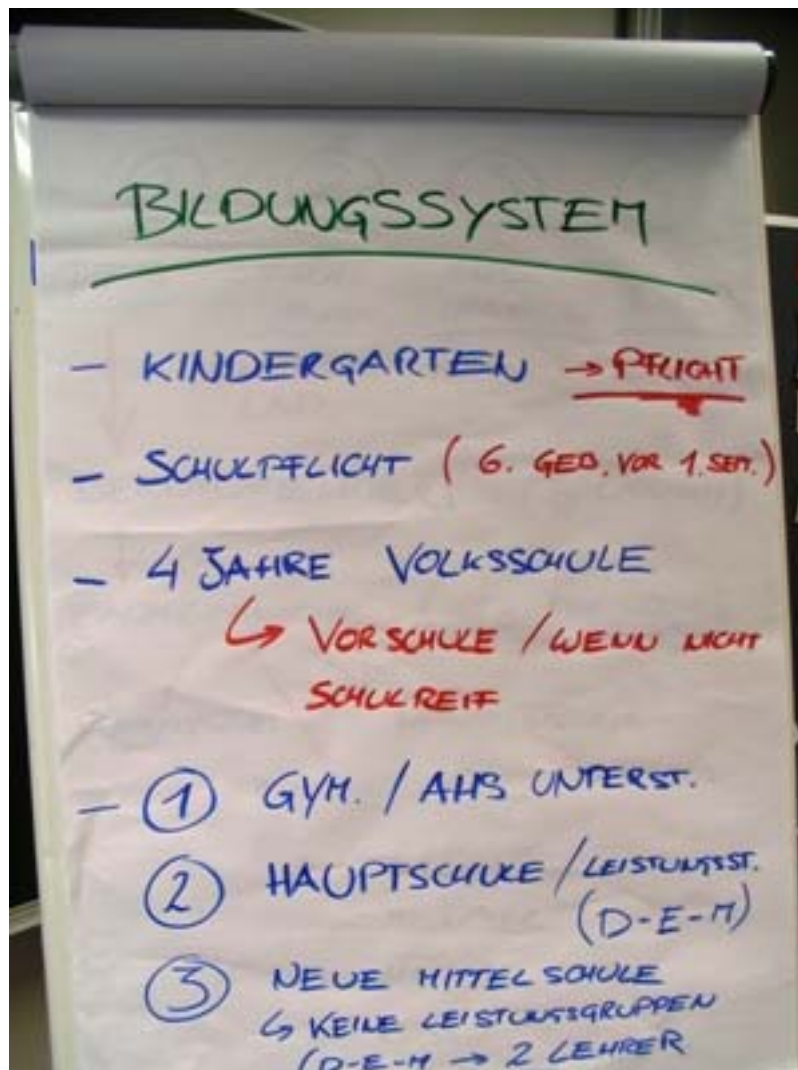 BILDUNGSSYSTEM
- KINDERGARTEN → PFLICHT
- SCHULPFLICHT ( 6. GEB. VOR 1. SEPT.)
- 4 JAHRE VOLKSSCHULE
↳ VORSCHULE / WENN NICHT
SCHULREIF
- ① GYM. / AHS UNTERST.
② HAUPTSCHULE / LEISTUNGSST.
(D-E-M)
③ NEUE MITTELSCHULE
↳ KEINE LEISTUNGSGRUPPEN
(D-E-M → 2 LEHRER